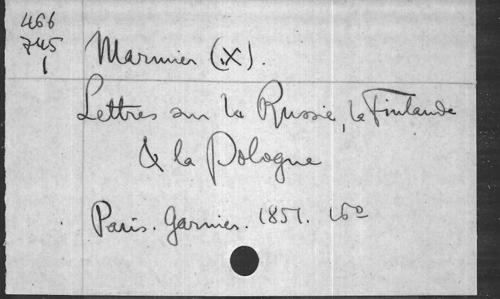 466
745
1
Marmier (X).
Lettres sur la Russie, la Finlande
& la Pologne
Paris. Garnier. 1851. 16o